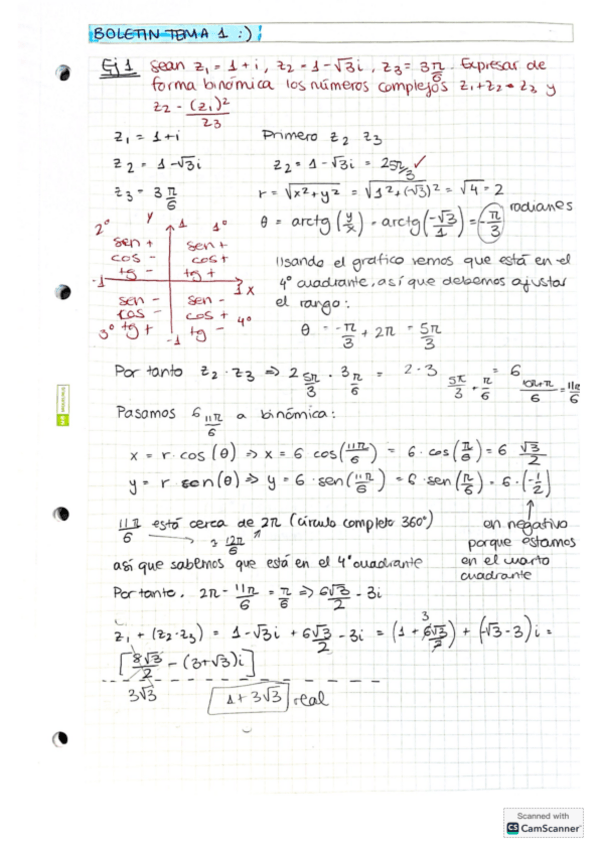 BOLETIN TEMA 1 :)
Ej 1 Sean z₁ = 1 + i, z₂ = 1 - √3 i, z₃ = 3 π/6. Expresar de
forma binómica los números complejos z₁ + z₂ · z₃ y
z₂ - (z₁)² / z₃
z₁ = 1 + i
Primero z₂ z₃
z₂ = 1 - √3 i
z₂ = 1 - √3 i = 2 5π/3 ✓
z₃ = 3 π/6
r = √(x² + y²) = √(1² + (-√3)²) = √4 = 2
θ = arctg (y/x) = arctg (-√3/1) = -π/3 radianes
2º y 1 1º
sen + sen +
cos - cos +
tg - tg +
-1 1 x
sen - sen -
cos - cos + 4º
3º tg + -1 tg -
Usando el gráfico vemos que está en el
4º cuadrante, así que debemos ajustar
el rango:
θ = -π/3 + 2π = 5π/3
Por tanto z₂ · z₃ ⇒ 2 5π/3 · 3 π/6 = 2 · 3 5π/3 + π/6 = 6 10π+π/6 = 11π/6
Pasamos 6 11π/6 a binómica:
x = r · cos (θ) ⇒ x = 6 cos (11π/6) = 6 · cos (π/6) = 6 √3/2
y = r sen (θ) ⇒ y = 6 · sen (11π/6) = 6 sen (π/6) = 6 · (-1/2)
11π/6 está cerca de 2π (círculo completo 360º)
12π/6
en negativo
porque estamos
en el cuarto
cuadrante
así que sabemos que está en el 4º cuadrante
Por tanto, 2π - 11π/6 = π/6 ⇒ 6√3/2 - 3i
z₁ + (z₂·z₃) = 1 - √3 i + 6√3/2 - 3i = (1 + 6√3/2) + (-√3 - 3) i =
3
[8√3/2 - (3+√3) i]
3√3
1 + 3√3 real
Scanned with
CS CamScanner